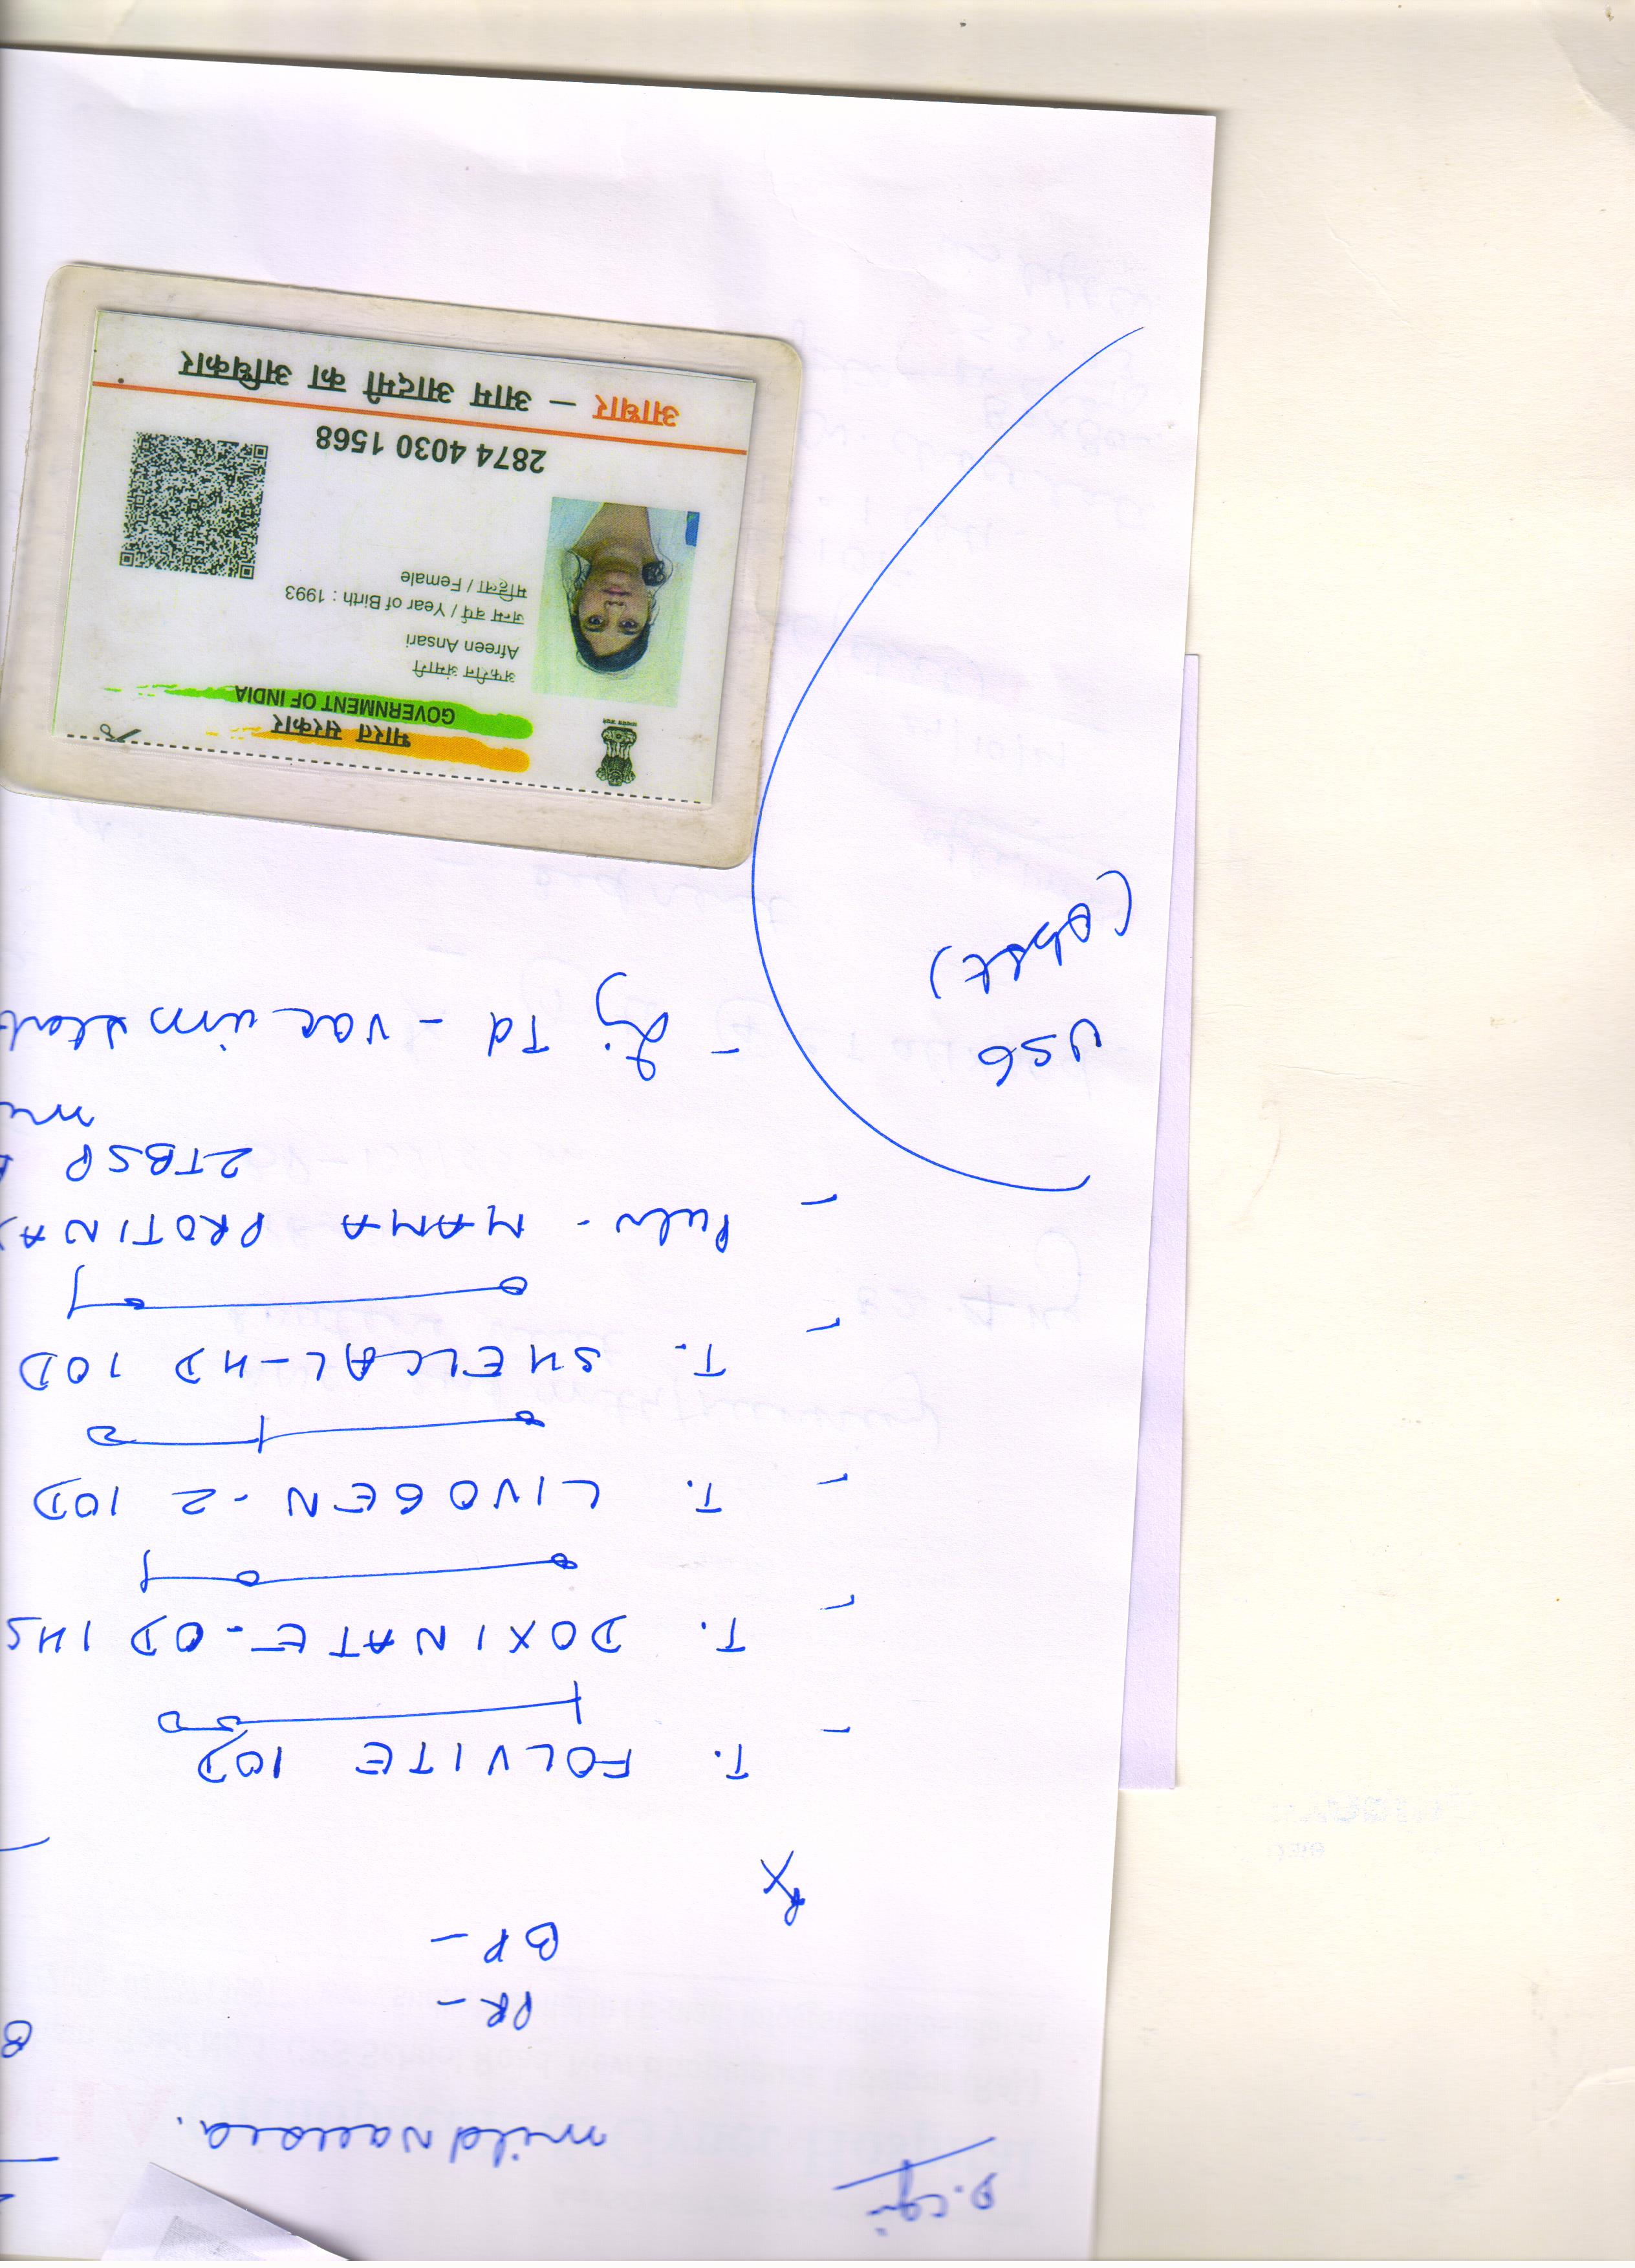 mild nausea.
PR -
BP -
Rx
- T. FOLVITE 1OD
- T. DOXINATE-OD 1HS
- T. LIVOGEN-Z 1OD
- T. SHELCAL-HD 1OD
- Pulv. MAMA PROTINA
2TBSP
- Inj Td - vac i/m stat
USG
(Obst)
भारत सरकार
GOVERNMENT OF INDIA
अफरीन अंसारी
Afreen Ansari
जन्म वर्ष / Year of Birth : 1993
महिला / Female
2874 4030 1568
आधार — आम आदमी का अधिकार